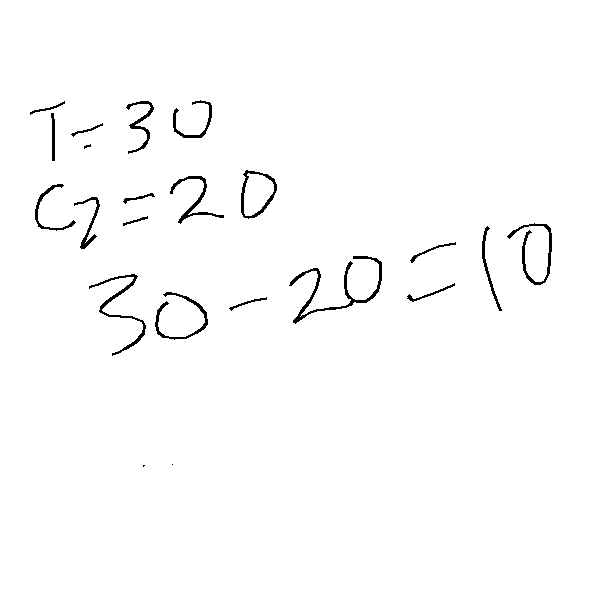 T=30
C2=20
30-20=10